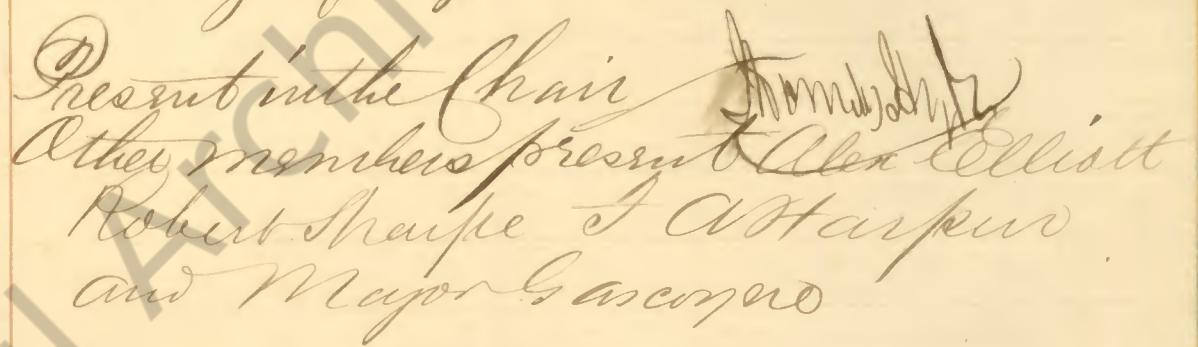 Present in the Chair Thomas
Other members present Alex Elliott
Robert Sharpe T A Harper
and Major Gascoyne
Archi